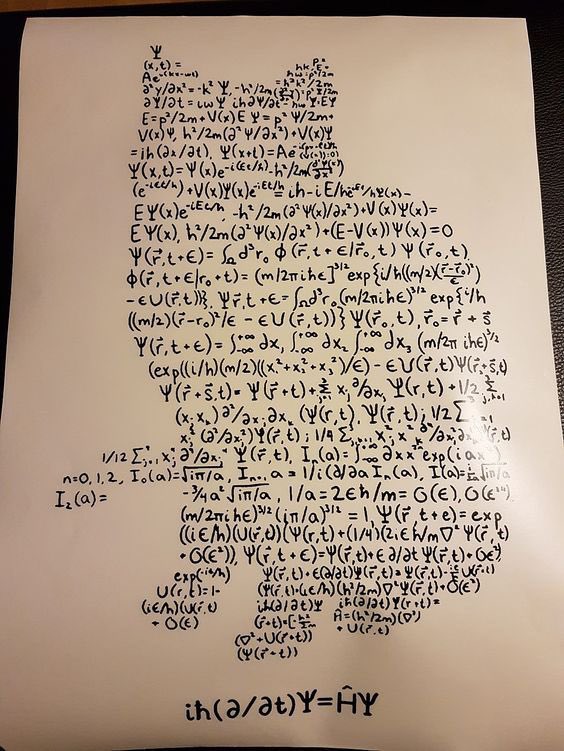 Ψ
(x,t) =
Ae^i(kx-wt) hk, p²
E= ħw=p²/2m
∂²y/∂x² = -k² Ψ, -ħ²/2m
∂Ψ/∂t = iw Ψ iħ ∂Ψ/∂t = ħw Ψ=EΨ
E=p²/2m+V(x) EΨ= p² Ψ/2m+
V(x)Ψ, ħ²/2m(∂²Ψ/∂x²)+V(x)Ψ
=iħ(∂x/∂t), Ψ(x+t)=Ae
Ψ(x,t)=Ψ(x)e^-i(Et/ħ)-ħ²/2m(∂²Ψ(x)/∂x²)
(e^-iEt/ħ)+V(x)Ψ(x)e^-iEt/ħ=iħ-iE/ħe^-iEt/ħΨ(x)-
EΨ(x)e^-iEt/ħ, -ħ²/2m(∂²Ψ(x)/∂x²)+V(x)Ψ(x)=
EΨ(x), ħ²/2m(∂²Ψ(x)/∂x²)+(E-V(x))Ψ(x)=0
Ψ(r⃗,t+ε)=∫_Ω d³r₀ ϕ(r⃗,t+ε/r₀,t) Ψ(r⃗₀,t),
ϕ(r⃗,t+ε/r₀+t)=(m/2πiħε]^3/2 exp{i/ħ((m/2)(r⃗-r⃗₀)²/ε)
-εU(r⃗,t))}, Ψr⃗,t+ε=∫_Ω d³r₀(m/2πiħε)^3/2 exp{i/ħ
((m/2)(r⃗-r₀)²/ε -εU(r⃗,t))}Ψ(r⃗₀,t), r⃗₀=r⃗+s⃗
Ψ(r⃗,t+ε)=∫_-∞^+∞ dx₁ ∫_-∞^+∞ dx₂ ∫_-∞^+∞ dx₃ (m/2π iħε)^3/2
(exp((i/ħ)(m/2)((x₁²+x₂²+x₃²)/ε)-εU(r⃗,t)Ψ(r⃗+s⃗,t)
Ψ(r⃗+s⃗,t)=Ψ(r⃗+t)+Σ x_j ∂/∂x_j Ψ(r,t)+1/2 Σ
(x_j x_k) ∂²/∂x_j ∂x_k (Ψ(r,t), Ψ(r⃗,t); 1/2 Σ
x_j² (∂²/∂x_j²)Ψ(r⃗,t); 1/4 Σ x_j² x_k² ∂⁴/∂x_j² ∂x_k² Ψ(r⃗,t)
1/12 Σ x_j⁴ ∂⁴/∂x_j⁴ Ψ(r⃗,t), I_n(a)=∫_-∞^+∞ dx x^n exp(iax²)
n=0,1,2, I₀(a)=√iπ/a, I_n+1 a=1/i(∂/∂a I_n(a), I(a)=i/2a √iπ/a
I₂(a)= -3/4a² √iπ/a, 1/a=2εħ/m=O(ε), O(ε²)
(m/2πiħε)^3/2 (iπ/a)^3/2=1, Ψ(r⃗ t+e)=exp
((iε/ħ)(U(r⃗,t))(Ψ(r,t)+(1/4)(2iεħ/m∇² Ψ(r⃗,t)
+O(ε²)), Ψ(r⃗,t+ε)=Ψ(r⃗,t)+ε∂/∂t Ψ(r⃗,t)+Oε²)
exp(-iε/ħ) Ψ(r⃗,t)+ε(∂/∂t)Ψ(r⃗,t)=Ψ(r⃗,t)-iε/ħ U(r⃗,t)
U(r,t)=1- (Ψ(r⃗,t)+(iε/ħ)(ħ²/2m)∇²Ψ(r⃗,t)+O(ε²)
(iε/ħ)(U(r⃗,t) iħ(∂/∂t)Ψ iħ(∂/∂t)Ψ(r+t)=
+O(ε) (r⃗+t)=[-ħ²/2m Ĥ=(ħ²/2m)(∇²)
(∇²+U(r⃗+t)) +U(r⃗,t)
(Ψ(r⃗+t))
iħ(∂/∂t)Ψ=ĤΨ